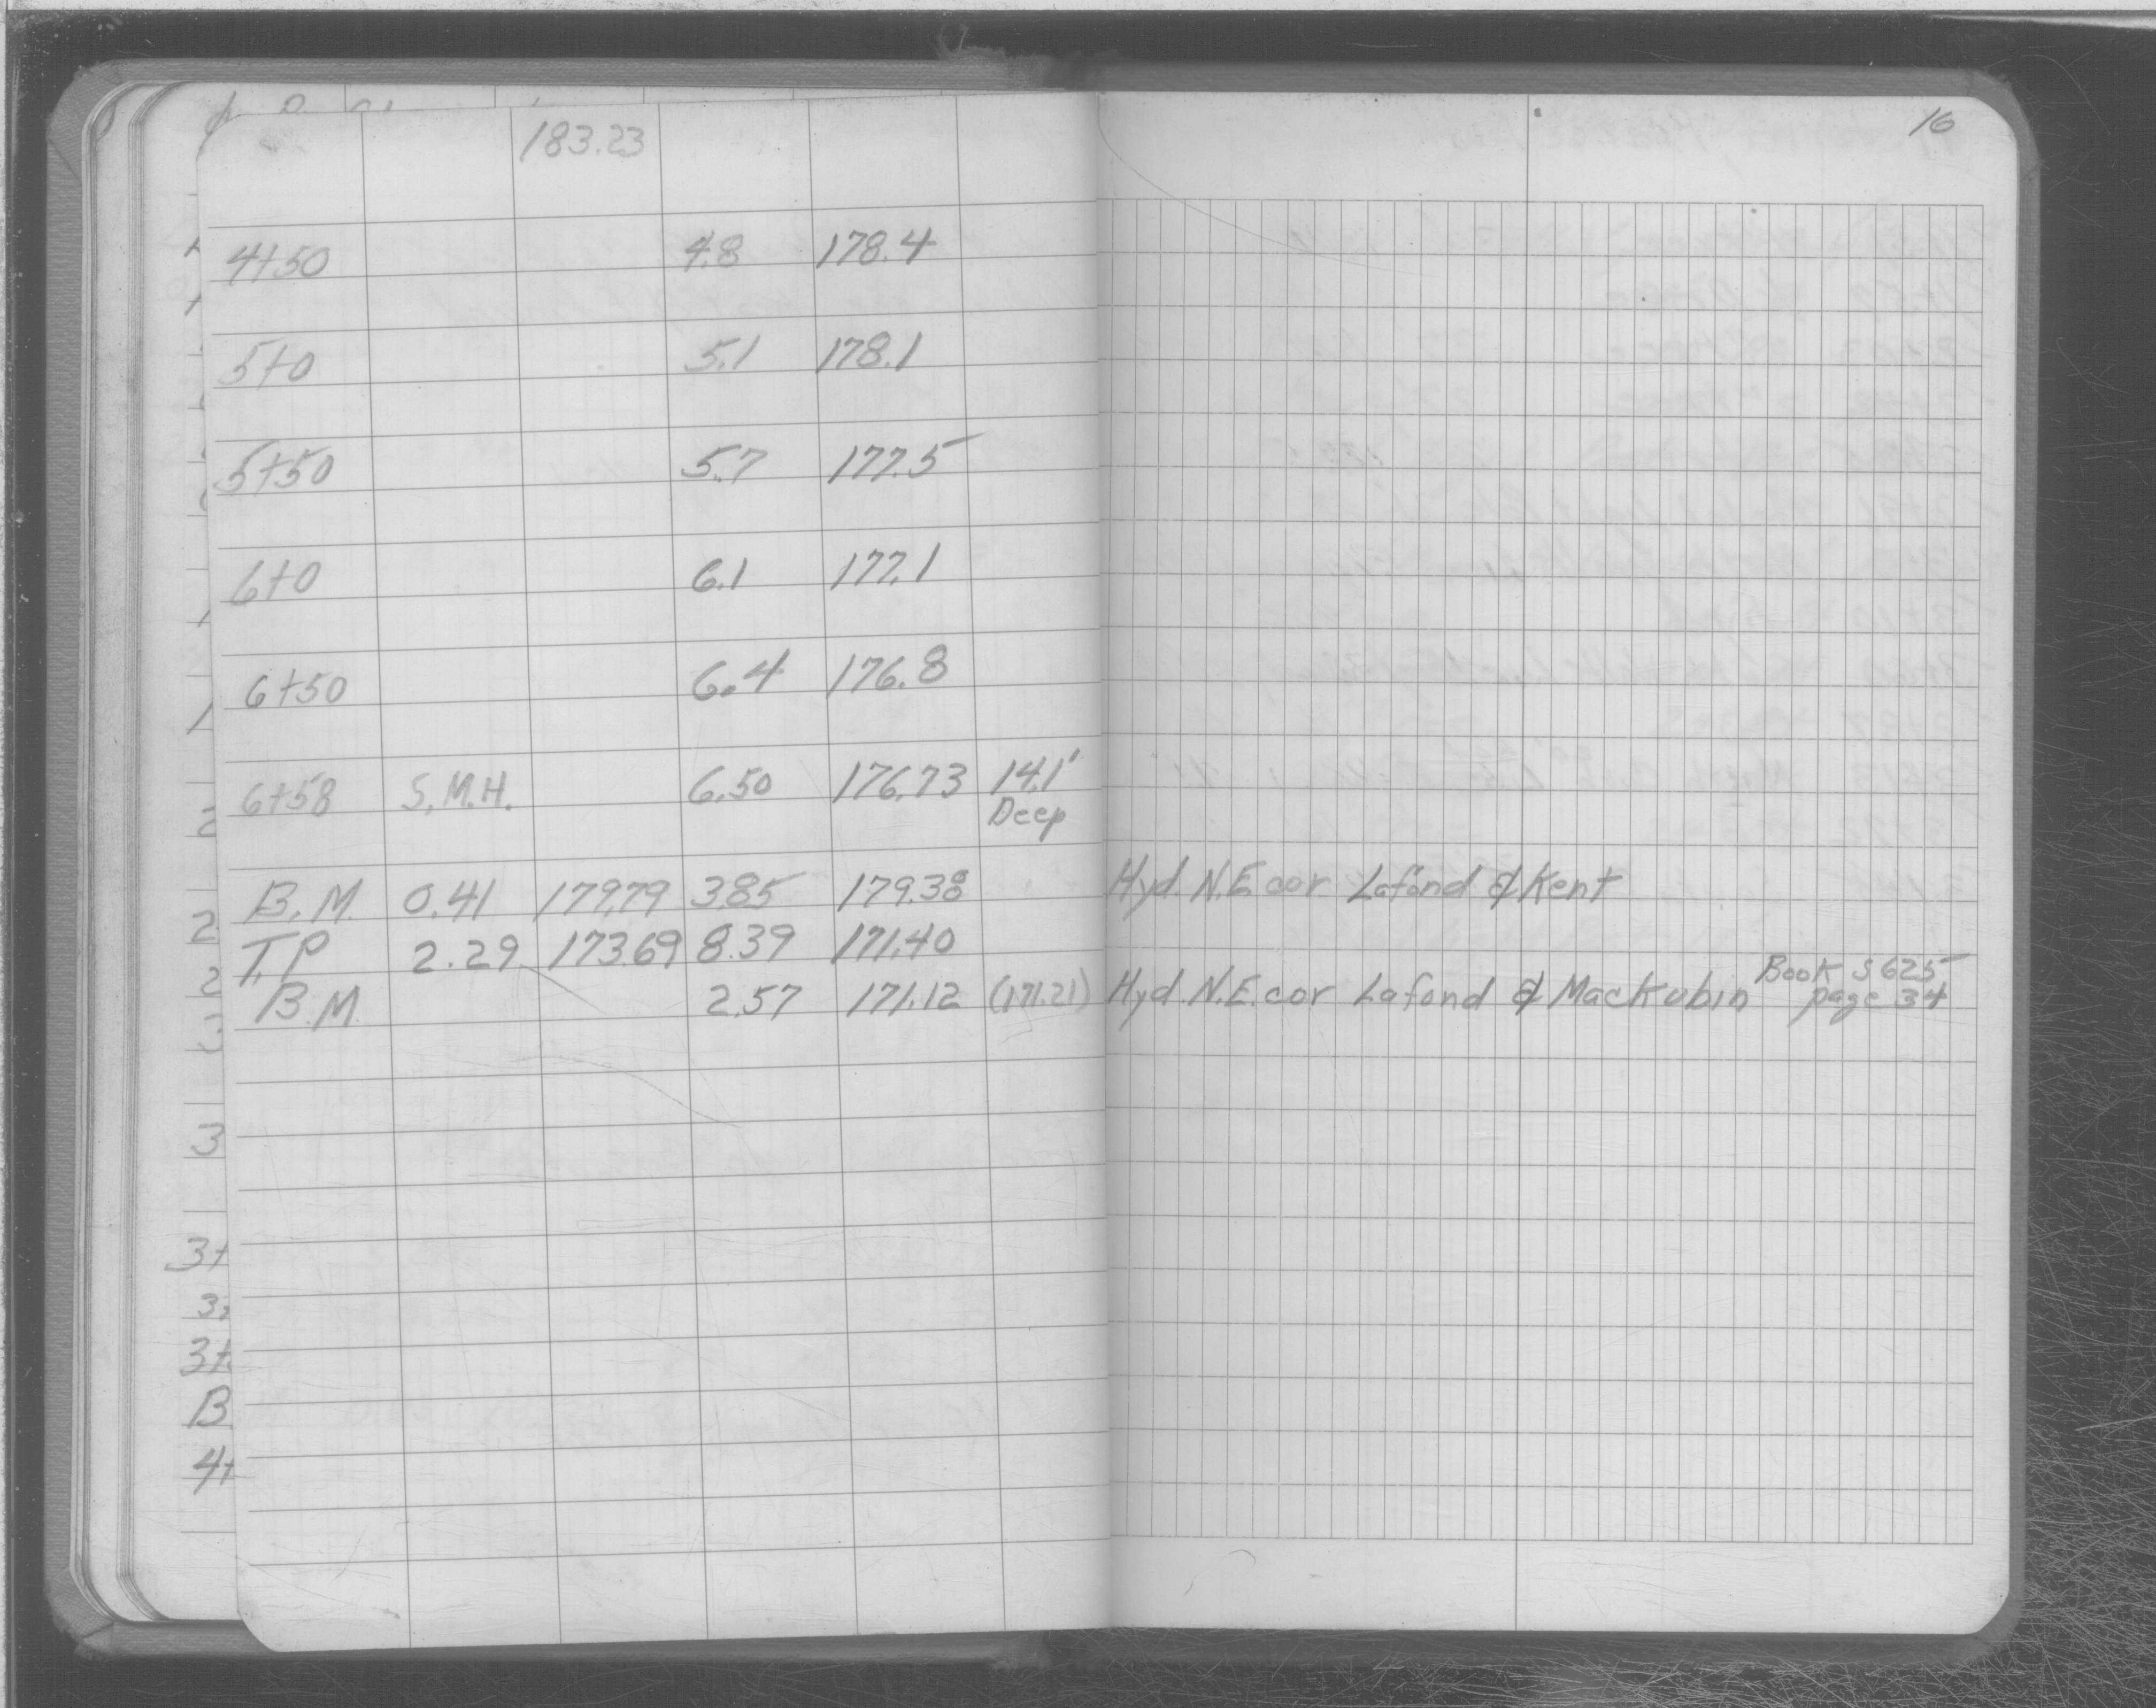 16
183.23
4+50 4.8 178.4
5+0 5.1 178.1
5+50 5.7 177.5
6+0 6.1 177.1
6+50 6.4 176.8
6+58 S.M.H. 6.50 176.73 14.1'
Deep
B.M. 0.41 179.79 3.85 179.38 Hyd. N.E. cor Lafond & Kent
T.P 2.29 173.69 8.39 171.40
B.M. 2.57 171.12 (171.21) Hyd. N.E. cor Lafond & Mackubin Book S625
page 34
2
2
3
3+
3+
B
4+